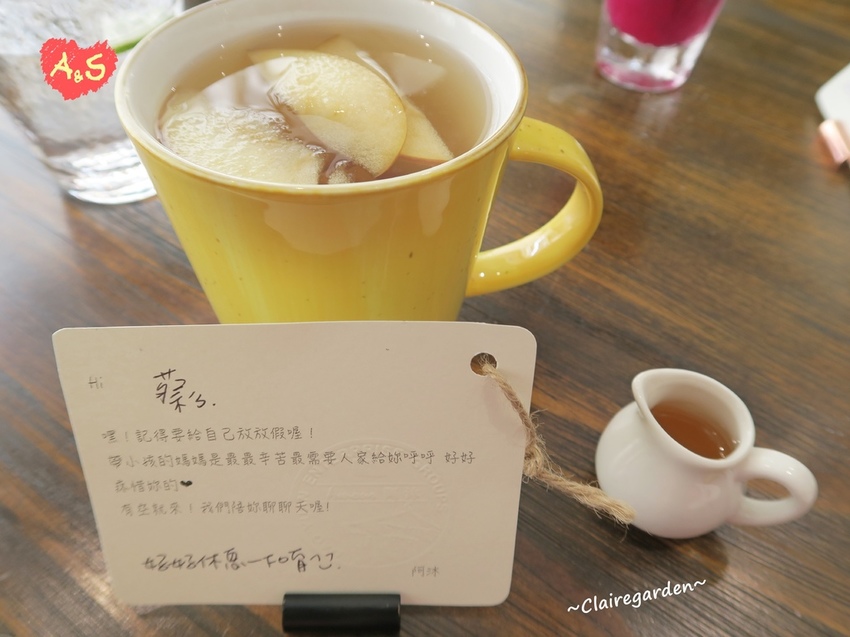 A&S
Hi
蔡小s.
嘿！記得要給自己放放假喔！
帶小孩的媽媽是最最辛苦最需要人家給妳呼呼 好好
疼惜妳的❤
有空就來！我們陪妳聊聊天喔！
好好休息一下唷！
阿沐
~Clairegarden~